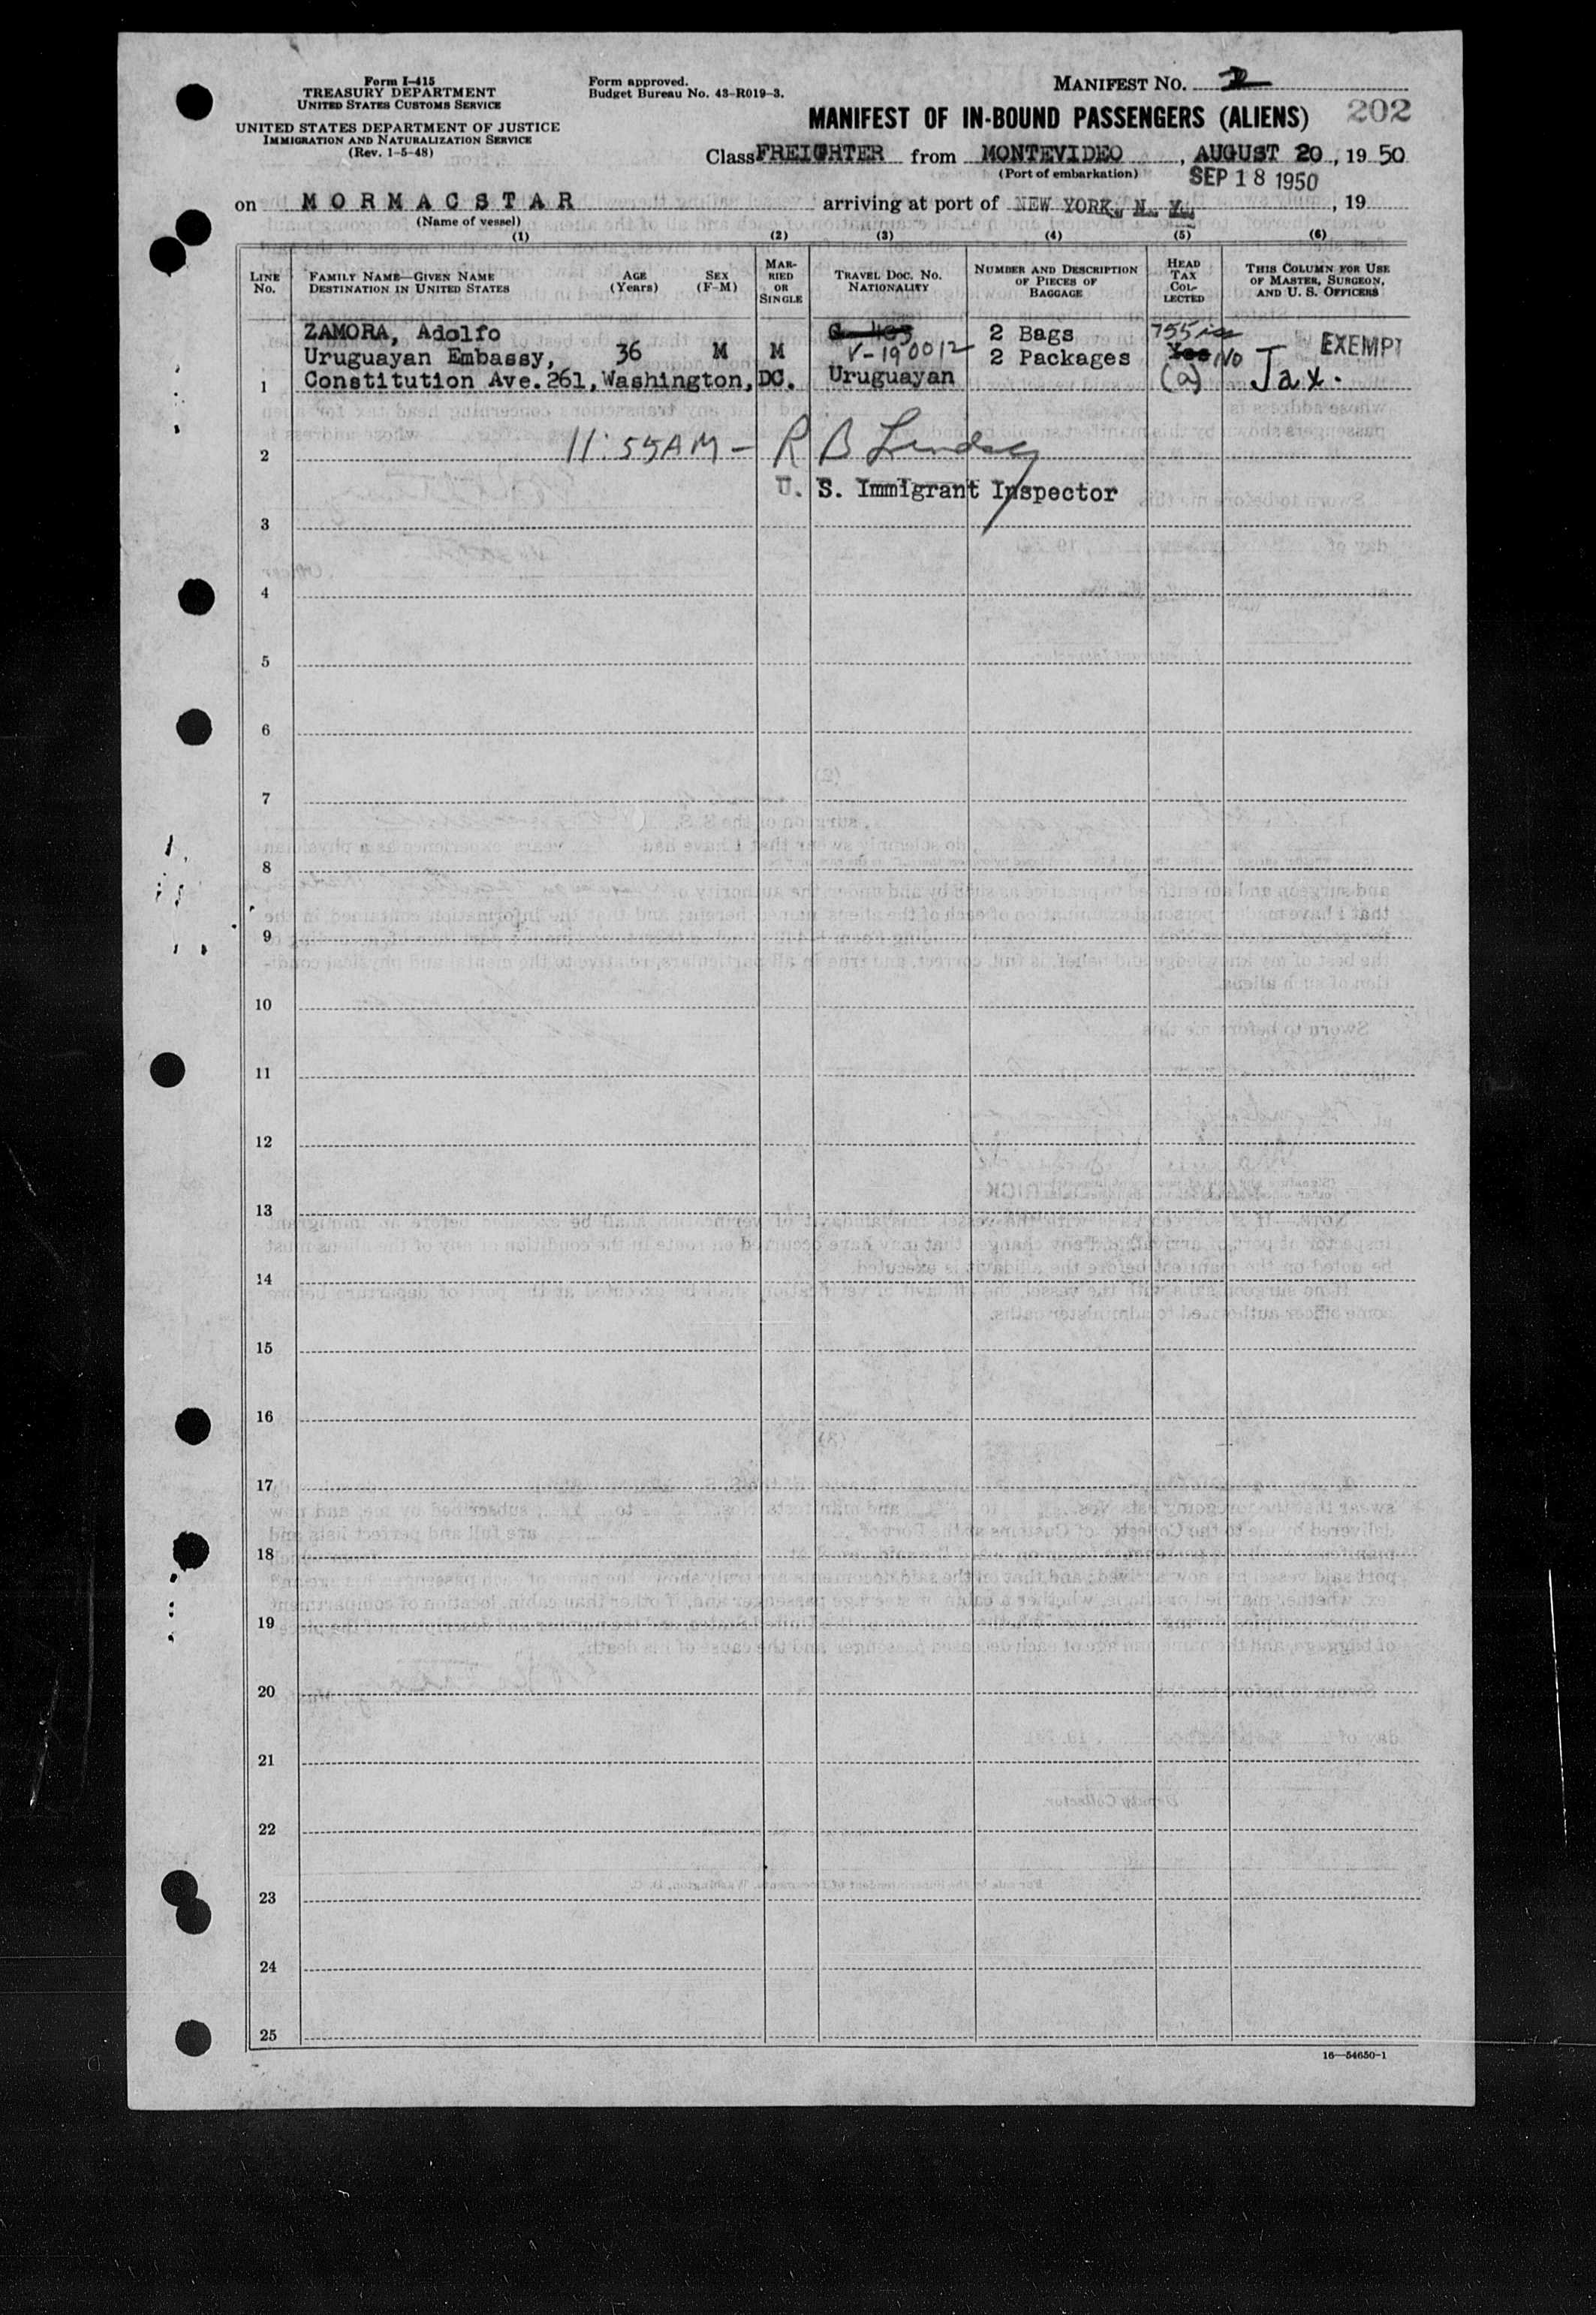 Form I-415
TREASURY DEPARTMENT
UNITED STATES CUSTOMS SERVICE
UNITED STATES DEPARTMENT OF JUSTICE
IMMIGRATION AND NATURALIZATION SERVICE
(Rev. 1-5-48)
Form approved.
Budget Bureau No. 43-R019-3.
MANIFEST NO.
202
MANIFEST OF IN-BOUND PASSENGERS (ALIENS)
Class FREIGHTER from MONTEVIDEO, AUGUST 20, 19 50
(Port of embarkation)
SEP 18 1950
on MORMACSTAR arriving at port of NEW YORK, N. Y., 19
(Name of vessel)
(1) (2) (3) (4) (5) (6)
LINE NO.
FAMILY NAME—GIVEN NAME
DESTINATION IN UNITED STATES
AGE (Years)
SEX (F-M)
MARRIED OR SINGLE
TRAVEL DOC. NO.
NATIONALITY
NUMBER AND DESCRIPTION OF PIECES OF BAGGAGE
HEAD TAX COLLECTED
THIS COLUMN FOR USE OF MASTER, SURGEON, AND U. S. OFFICERS
ZAMORA, Adolfo 2 Bags
Uruguayan Embassy, 36 M M V-190012 2 Packages No EXEMPT
1 Constitution Ave. 261, Washington, DC. Uruguayan (a) Tax.
2 11:55AM - R B Lindsey
U. S. Immigrant Inspector
3
4
5
6
7
8
9
10
11
12
13
14
15
16
17
18
19
20
21
22
23
24
25
16—54650-1